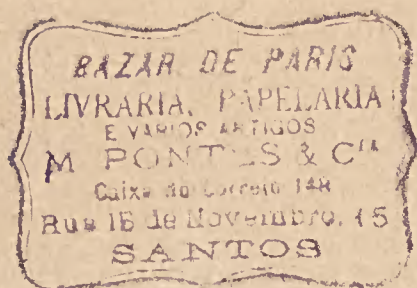 BAZAR DE PARIS
LIVRARIA, PAPELARIA
E VARIOS ARTIGOS
M PONTES & Cia
Caixa do Correio 148
Rua 15 de Novembro, 45
SANTOS